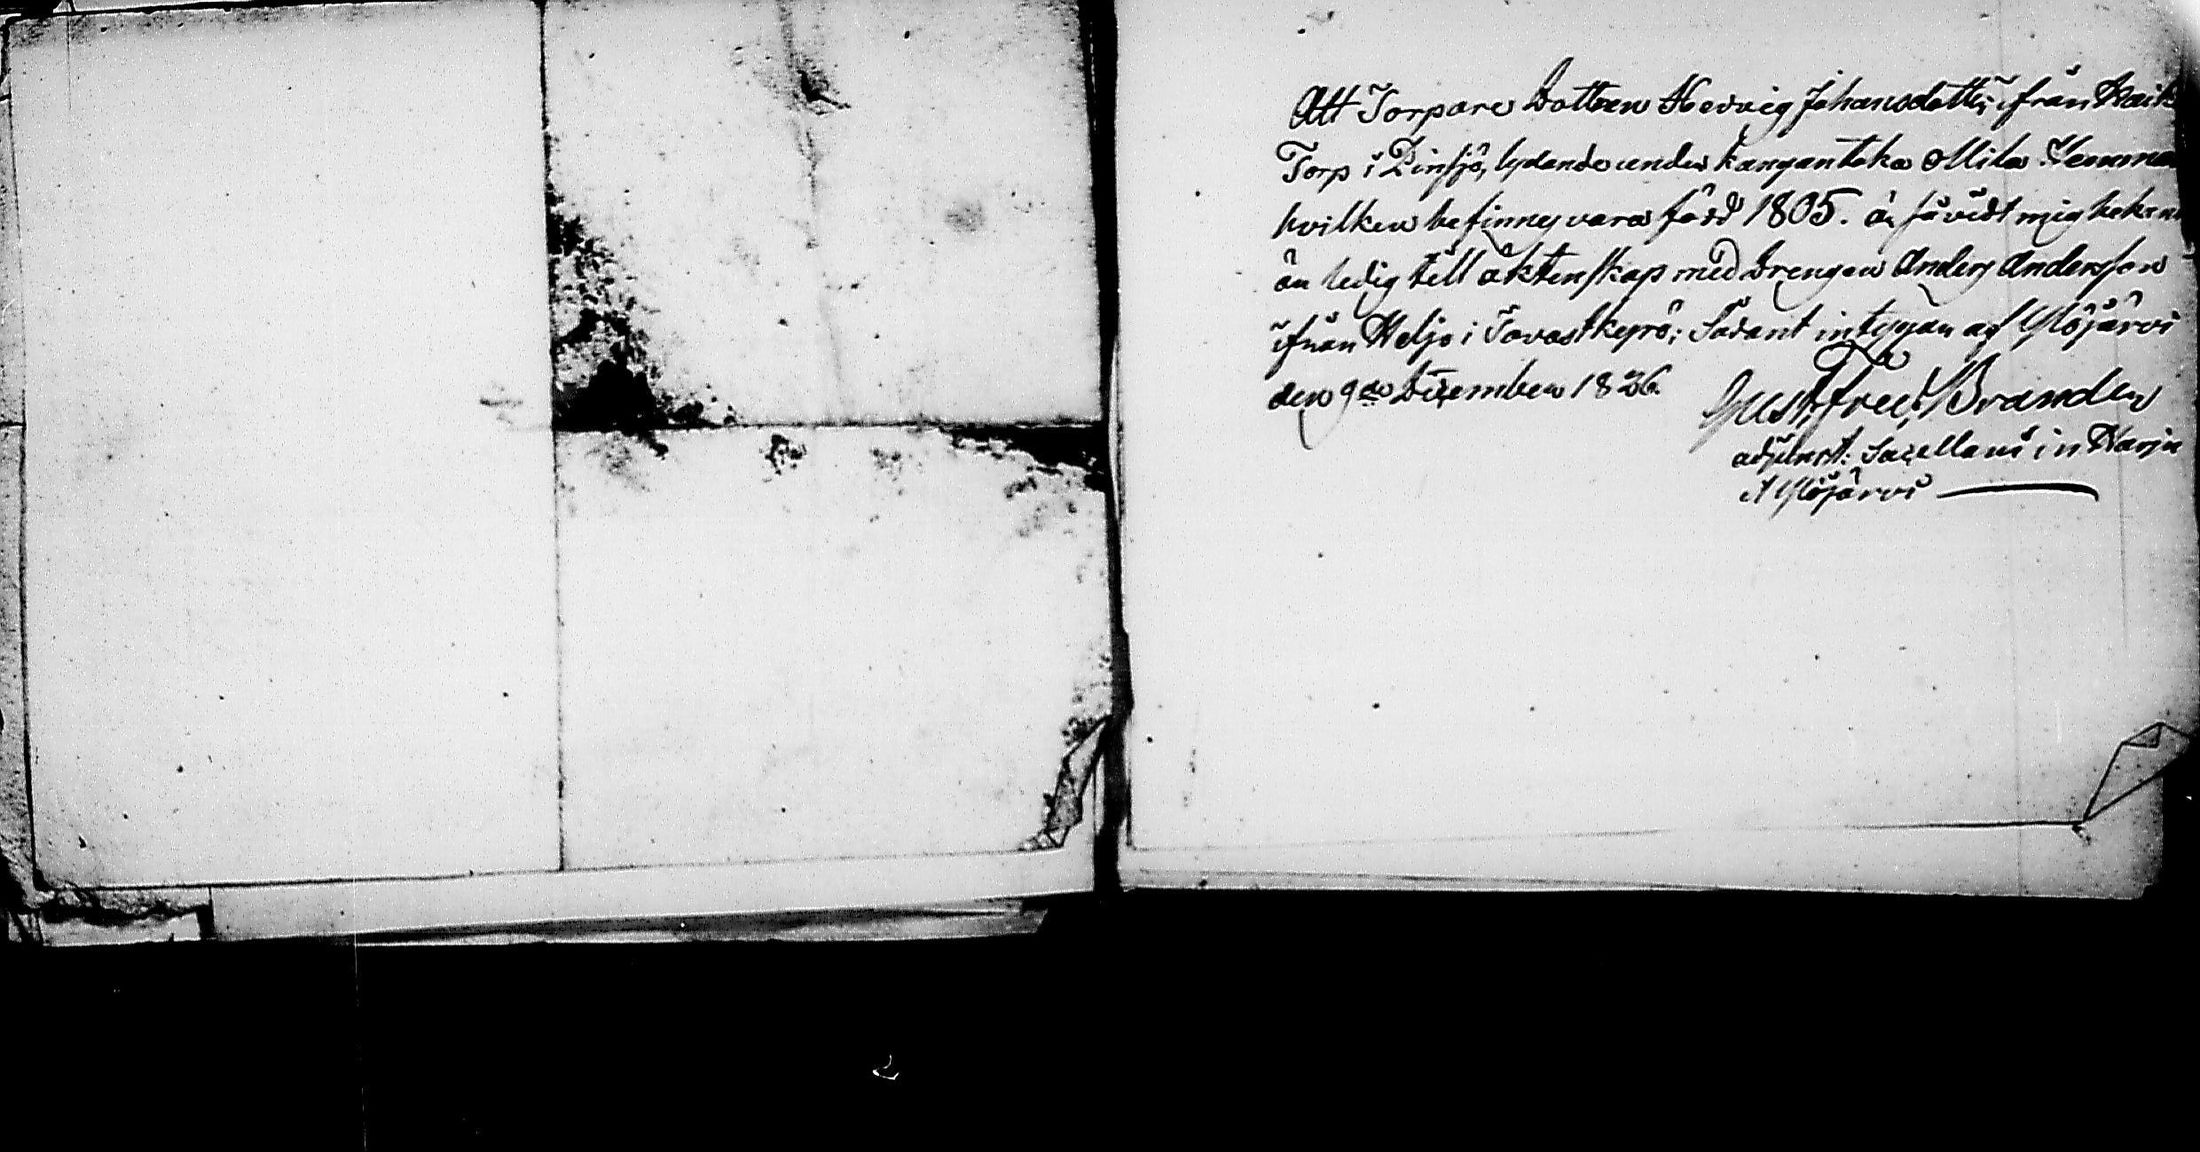 Att Torpare Dottren Hedvig Johansdotter, ifrån Haik
Torp i Pinsjö, lydande under Kanganteka Mila Hemma
hvilken befinnes vara född 1805. är så vidt mig bekan
än ledig till äktenskap med Drengen Anders Andersson
ifrån Heljo i Tavastkyrö; Sådant intygan af Ylöjärvi
den 9de December 1826.
Gust: Fred: Brander
adjunct: Sacellani in Harju
& Ylöjärvi